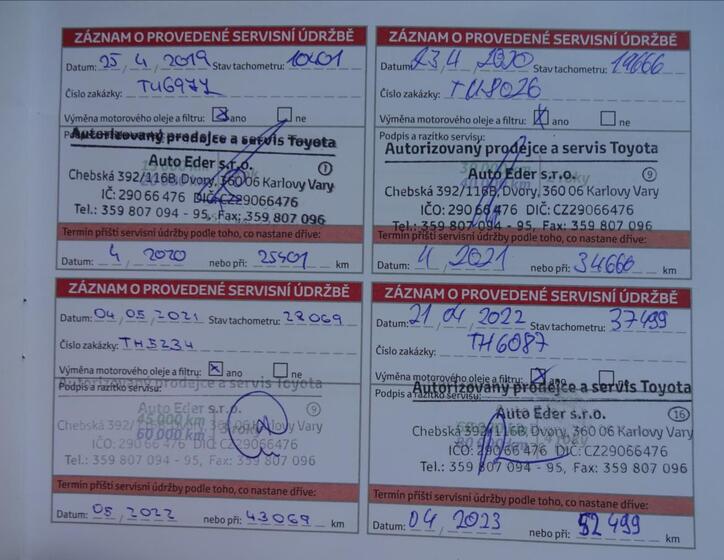 ZÁZNAM O PROVEDENÉ SERVISNÍ ÚDRŽBĚ
Datum: 25 / 4 / 2019 Stav tachometru: 10401
Číslo zakázky: TU6971
Výměna motorového oleje a filtru: ☒ ano ☐ ne
Podpis a razítko servisu:
Autorizovaný prodejce a servis Toyota
Auto Eder s.r.o. 1
Chebská 392/116B, Dvory, 360 06 Karlovy Vary
IČ: 290 66 476 DIČ: CZ29066476
Tel.: 359 807 094 - 95, Fax: 359 807 096
Termín příští servisní údržby podle toho, co nastane dříve:
Datum: 4 / 2020 nebo při: 25401 km
ZÁZNAM O PROVEDENÉ SERVISNÍ ÚDRŽBĚ
Datum: 23 / 4 / 2020 Stav tachometru: 19666
Číslo zakázky: TU8026
Výměna motorového oleje a filtru: ☒ ano ☐ ne
Podpis a razítko servisu:
Autorizovaný prodejce a servis Toyota
Auto Eder s.r.o. 9
Chebská 392/116B, Dvory, 360 06 Karlovy Vary
IČO: 290 66 476 DIČ: CZ29066476
Tel.: 359 807 094 - 95, Fax: 359 807 096
Termín příští servisní údržby podle toho, co nastane dříve:
Datum: 4 / 2021 nebo při: 34666 km
ZÁZNAM O PROVEDENÉ SERVISNÍ ÚDRŽBĚ
Datum: 04 / 05 / 2021 Stav tachometru: 28069
Číslo zakázky: TH5234
Výměna motorového oleje a filtru: ☒ ano ☐ ne
Podpis a razítko servisu:
Autorizovaný prodejce a servis Toyota
Auto Eder s.r.o. 9
45 000 km
Chebská 392/116B, Dvory, 360 06 Karlovy Vary
60 000 km
IČO: 290 66 476 DIČ: CZ29066476
Tel.: 359 807 094 - 95, Fax: 359 807 096
Termín příští servisní údržby podle toho, co nastane dříve:
Datum: 05 / 2022 nebo při: 43069 km
ZÁZNAM O PROVEDENÉ SERVISNÍ ÚDRŽBĚ
Datum: 21 / 04 / 2022 Stav tachometru: 37499
Číslo zakázky: TH6087
Výměna motorového oleje a filtru: ☒ ano ☐ ne
Podpis a razítko servisu:
Autorizovaný prodejce a servis Toyota
Auto Eder s.r.o. 16
Chebská 392/116B, Dvory, 360 06 Karlovy Vary
IČO: 290 66 476 DIČ: CZ29066476
Tel.: 359 807 094 - 95, Fax: 359 807 096
Termín příští servisní údržby podle toho, co nastane dříve:
Datum: 04 / 2023 nebo při: 52499 km